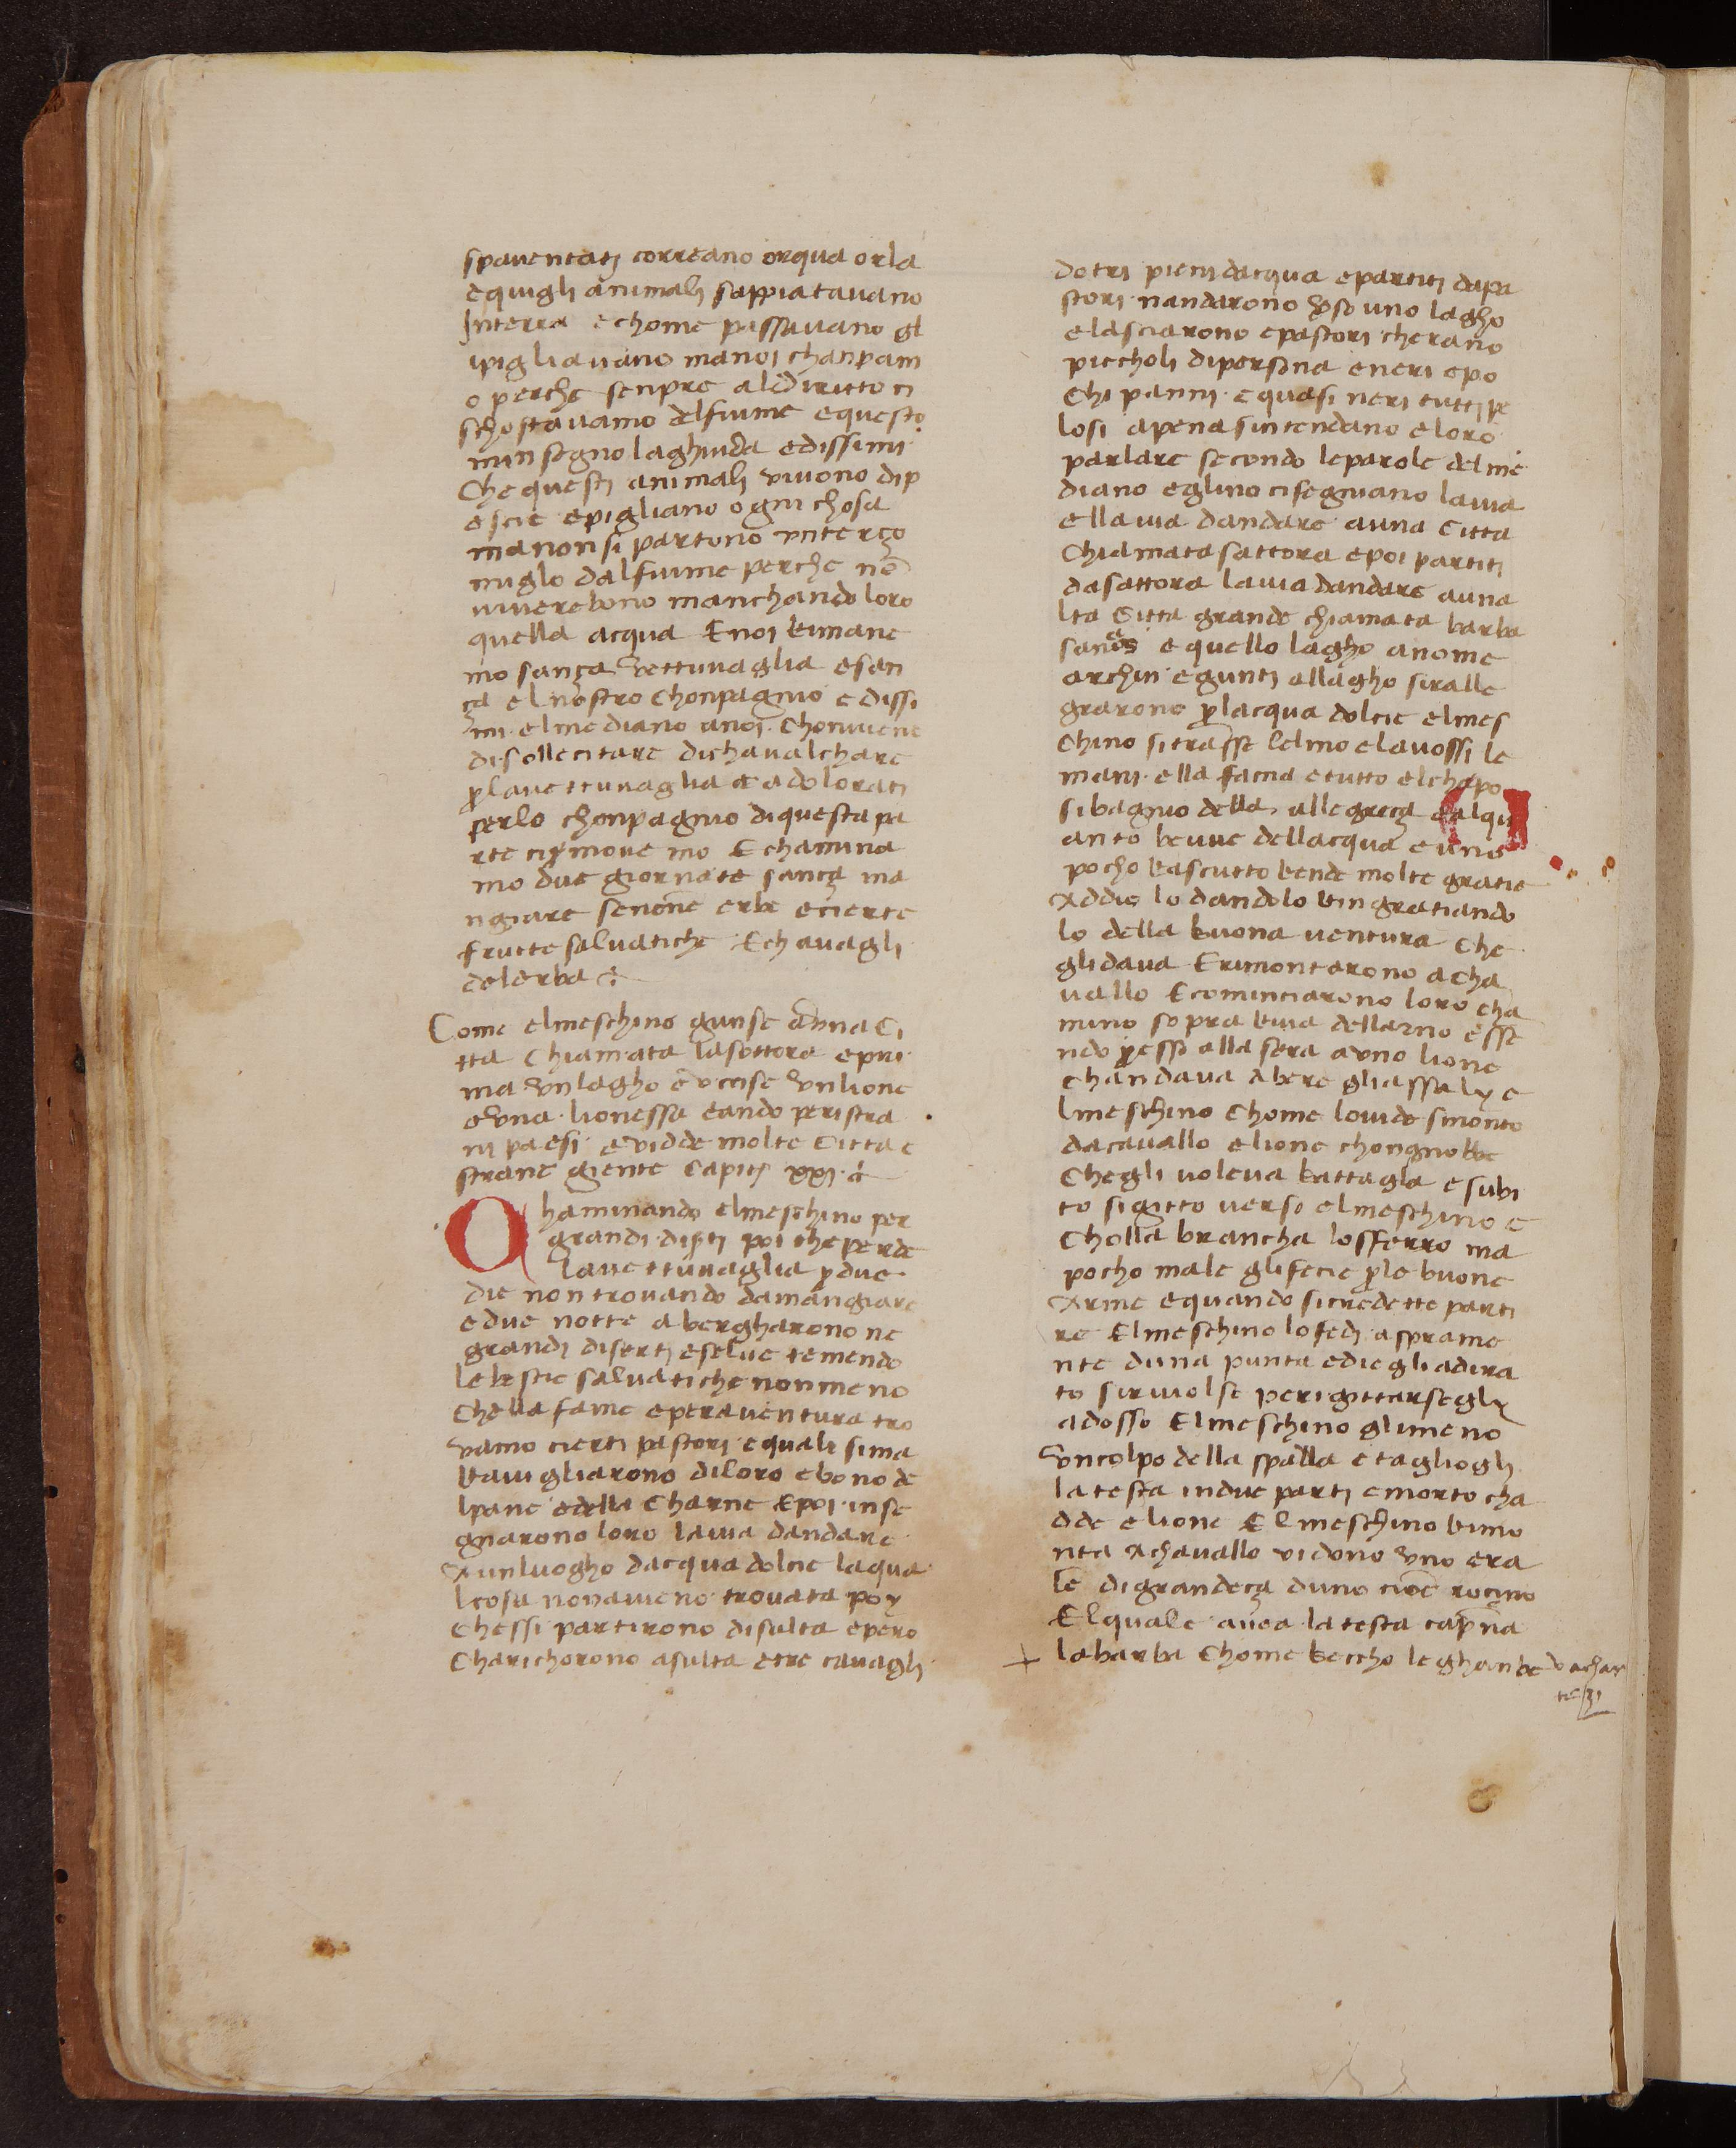 spauentatj correano orqua orla
equigli animalj sappiatauano
Jnterra echome passauano gl
ipigliauano manoi chanpam
o perche senpre alediritto ci
schostauamo delfiume equesto
minsegno laghuida edissimi
Che questi animalj viuono dip
escie epigliano ogni chosa
manonsi partono vnterço
miglo dalfiume perche nō
viuerebono manchando loro
quella acqua Enoj rimane
mo sança Vettuuaglia esan
ça elnostro chonpagnio edissi
mi elmediano anoj chonuiene
disollecitare dichaualchare
plauettuuaglia e adolorati
perlo chonpagnio diquesta pa
rte cipmouemo Echamina
mo due giornate sança ma
ngiare senone erbe ecierte
frutte saluatiche Echauagli
delerba
Come elmeschino giunse auna Ci
tta Chiamata lasottora epri
ma Vnlagho euccise Vnlione
eVna lionessa eando peristra
nj paesi euidde molte Citta e
strane giente Capito xxj
Chaminando elmeschino per
grandi diserti poi cheperde
lauettuuaglia pdue
die nontrouando damangiare
edue notte abergharono ne
grandj disertj eselue temendo
lebestie saluatiche nonmeno
Chella fame eperauentura tro
vamo cierti pastori equali sima
rauigliarono diloro ebono de
lpane edella Charne Epoi inse
gniarono loro lauia dandare
Aunluogho dacqua dolcie laqua
lcosa nonaueno trouata poy
Chessi partirono disulta epero
Charichorono asulta etre cauagli
dotri pienidacqua epartiti dapa
stori nandarono Vso uno lagho
elasciarono epastori cherano
piccholi dipersona eneri epo
Chi panni equasi neri tuttipe
losi apenasintendano eloro
parlare secondo leparole delme
diano eglino cisegniano lauia
ellauia dandare auna Citta
Chiamata sattora epoi partiti
dasattora lauia dandare auna
lta Citta grande chiamata barba
sanes equello lagho anome
archin egiunti allagho siralle
grarono placqua dolcie elmes
Chino sitrasse lelmo elauossi le
mani ella facia etutto elchapo
sibagnio della allegreça ealqu
anto beuue dellacqua euno
pocho basciutto rende molte gratie
Addio lodandolo ringratiando
lo della buona uentura Che
glidaua Erimonterono acha
uallo Ecominciarono loro cha
mino sopra riua dellarno esse
ndo presso alla sera auno lione
Chandaua Abere gliassalj e
lmeschino Chome louide smonto
dacauallo elione chongnobbe
Chegli uoleua battagla esubi
to sigitto uerso elmeschino e
Cholla brancha losfferro ma
pocho male glifecie ple buone
Arme equando sicredette parti
re Elmeschino lofedj asprame
nte duna punta ediegliadira
to siriuolse perigittarseglj
adosso Elmeschino glimeno
Vncolpo della spalla etagliogli
latesta indue parti emorto cha
dde elione Elmeschino rimo
nta Achauallo vidono Vno era
le digrandeça duno cioe roçino
Elquale auea latesta caprina
labarba Chome beccho leghanbe
vachar
te 31